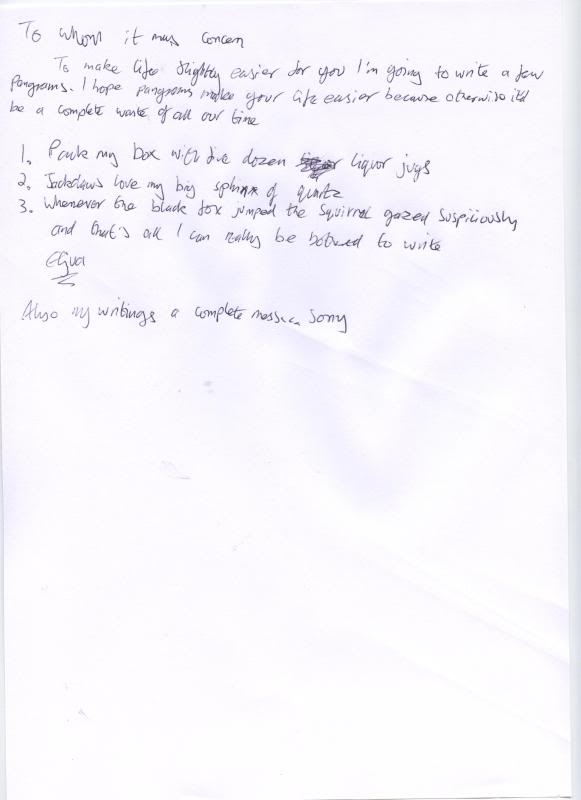 To whom it may concern
To make life slightly easier for you I'm going to write a few
pangrams. I hope pangrams make your life easier because otherwise it'd
be a complete waste of all our time
1. Pack my box with five dozen liquor jugs
2. Jackdaws love my big sphinx of quartz
3. Whenever the black fox jumped the squirrel gazed suspiciously
and that's all I can really be bothered to write
Also my writings a complete mess... sorry